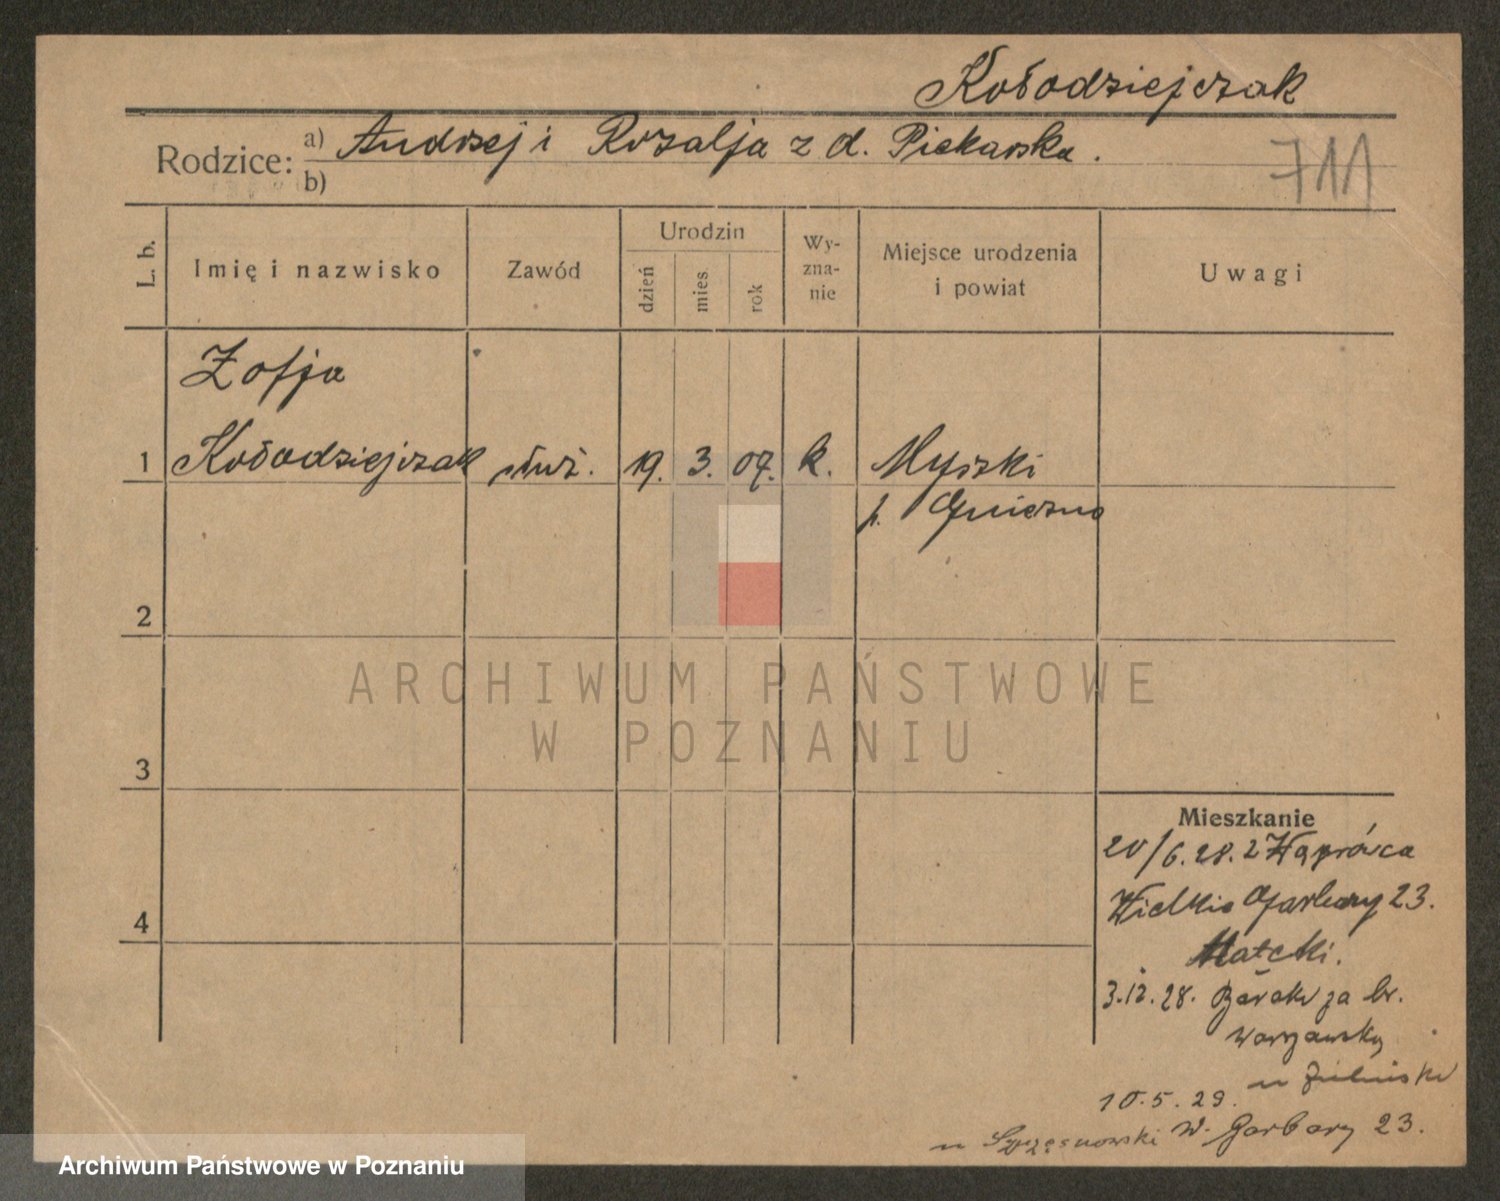 Kołodziejczak
Rodzice: a) Andrzej i Rozalja z d. Piekarska.
b)
711
L. b.
Imię i nazwisko
Zawód
Urodzin
dzień
mies
rok
Wy-
zna-
nie
Miejsce urodzenia
i powiat
Uwagi
Zofja
1 Kołodziejczak służ. 19. 3. 07. k.
p. Gniezno
2
3
4
ARCHIWUM PAŃSTWOWE
W POZNANIU
Mieszkanie
20/6.28. z Wągrówca
Wielkie Garbary 23.
Małecki.
3.12.28. Barak za br.
warszawską
u Zieliński
10.5.29.
u Szczęsnowski W. Garbary 23.
Archiwum Państwowe w Poznaniu